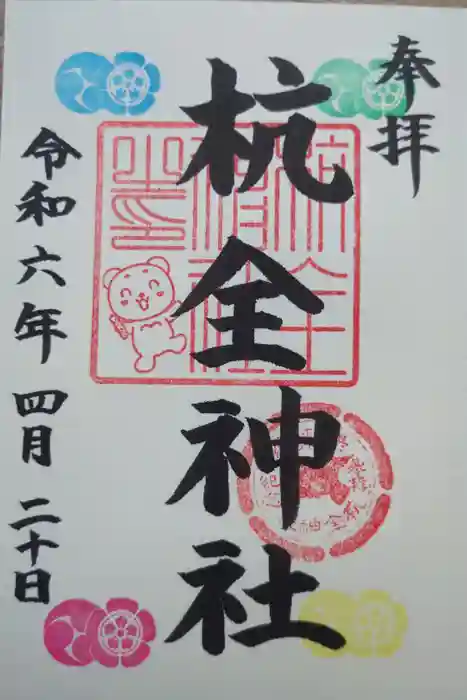 奉拝
杭全神社
令和六年四月二十日